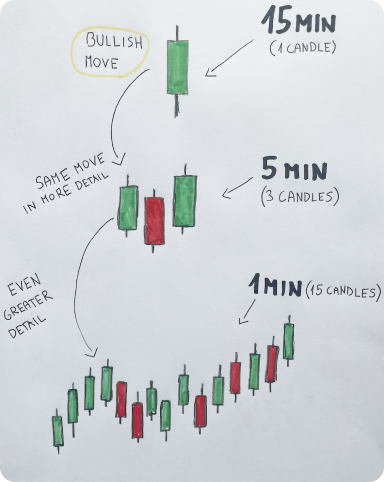 BULLISH
MOVE
15MIN
(1 CANDLE)
SAME MOVE
IN MORE DETAIL
5 MIN
(3 CANDLES)
EVEN
GREATER
DETAIL
1MIN (15 CANDLES)